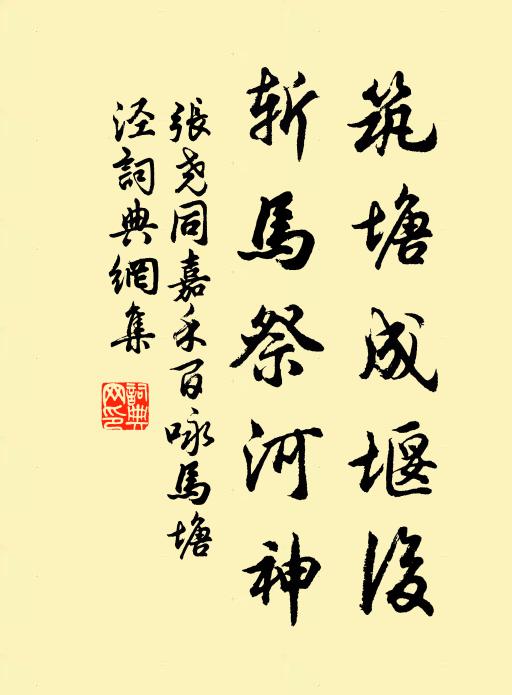 筑塘成堰後
斩馬祭河神
張尧同嘉禾百咏馬塘
泾詞典網集
詞典网印